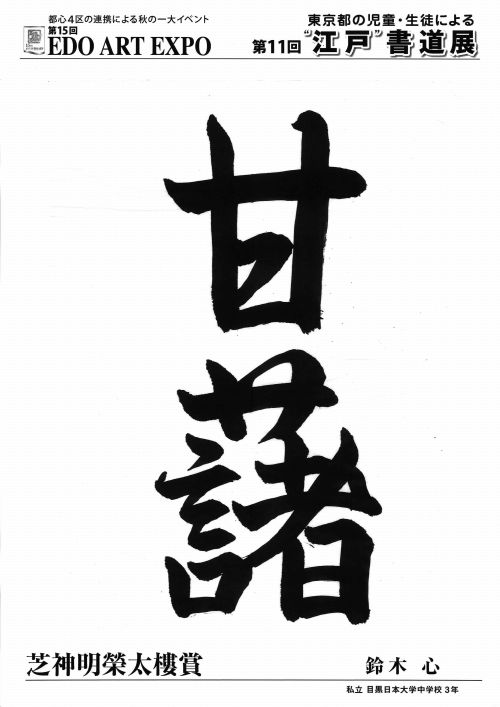 都心4区の連携による秋の一大イベント
第15回
EDO ART EXPO
東京都の児童・生徒による
第11回 “江戸”書道展
甘藷
芝神明榮太樓賞
鈴木 心
私立 目黒日本大学中学校 3年